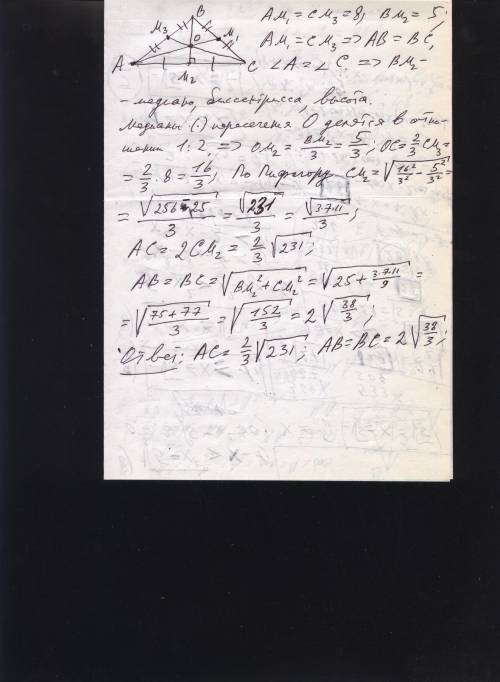 B
M₃ M₁
O
A C
M₂
AM₁ = CM₃ = 8, BM₂ = 5;
AM₁ = CM₃ => AB = BC,
∠A = ∠C => BM₂ -
- медиана, биссектрисса, высота.
Медианы (·) пересечения O делятся в отно-
шении 1:2 => OM₂ = BM₂/3 = 5/3; OC = 2/3 CM₃ =
= 2/3 · 8 = 16/3; По Пифагору CM₂ = √(16²/3² - 5²/3²) =
= √(256-25)/3 = √231/3 = √(3·7·11)/3;
AC = 2CM₂ = 2/3 √231;
AB = BC = √(BM₂² + CM₂²) = √(25 + 3·7·11/9) =
= √((75+77)/3) = √(152/3) = 2√(38/3);
Ответ: AC = 2/3 √231; AB = BC = 2√(38/3);